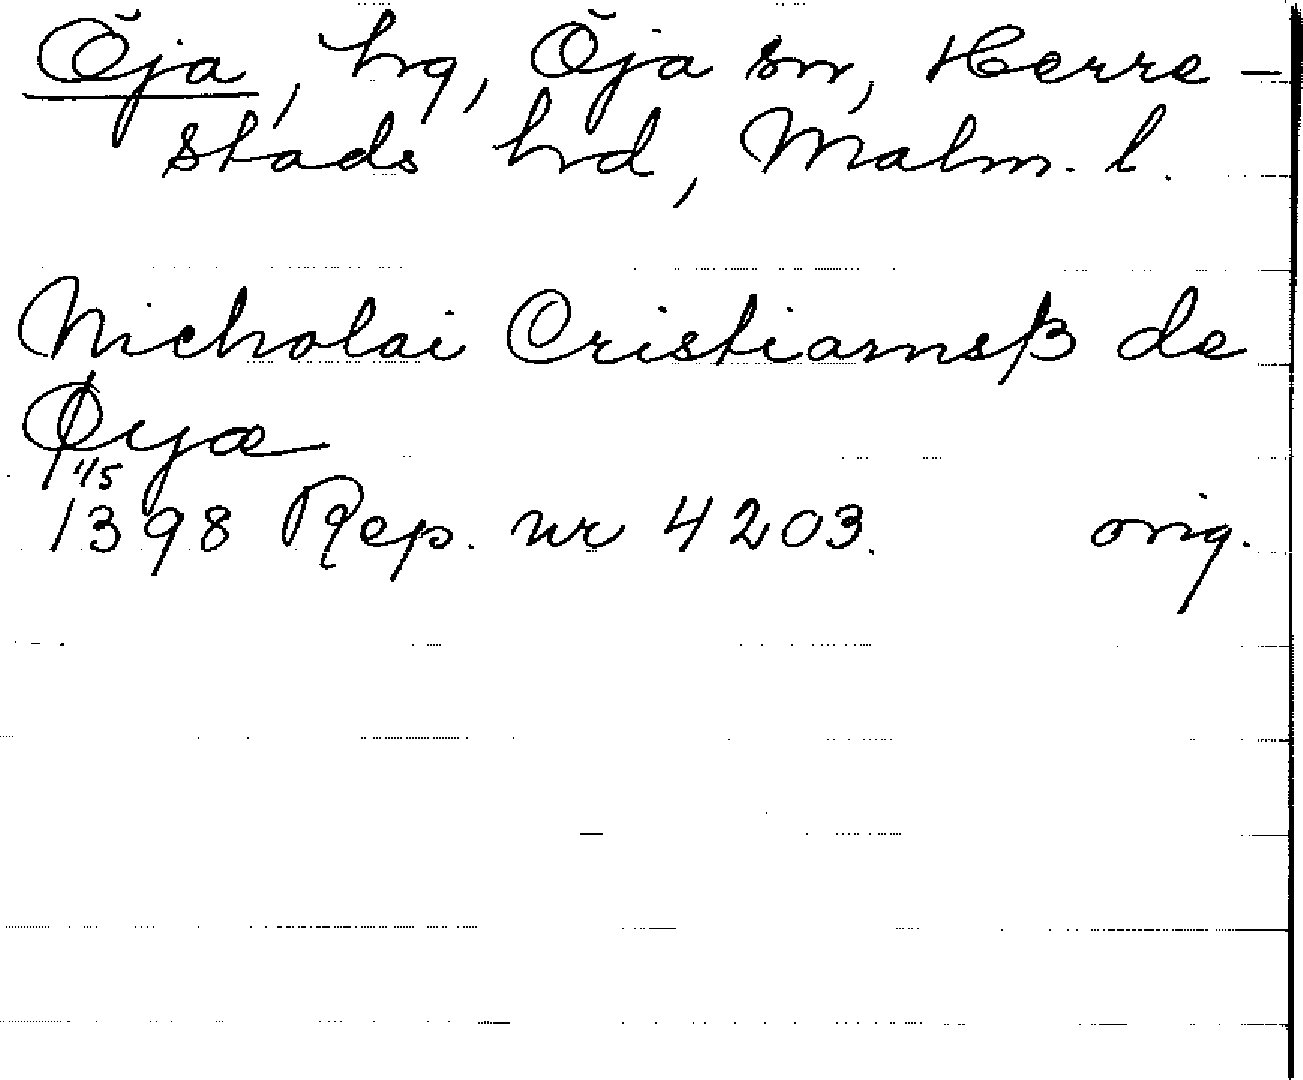 Öja, hg, Öja sn, Herre-
stads hrd, Malm. l.
Nicholai Cristiarnsß de
Øyæ
11/5
1398 Rep. nr 4203. orig.